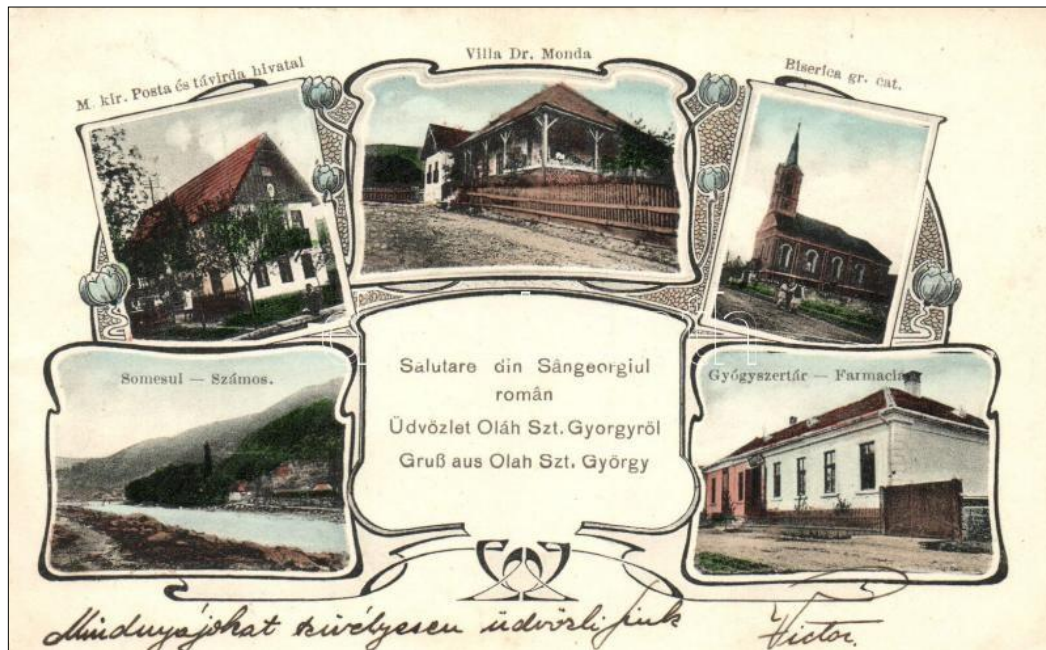 M. kir. Posta és távirda hivatal
Villa Dr. Monda
Biserica gr. cat.
Somesul — Számos.
Salutare din Sângeorgiul
român
Üdvözlet Oláh Szt. Gyorgyröl
Gruß aus Olah Szt. György
Gyógyszertár — Farmacia
Mindnyájokat szivélyesen üdvözli
Victor.